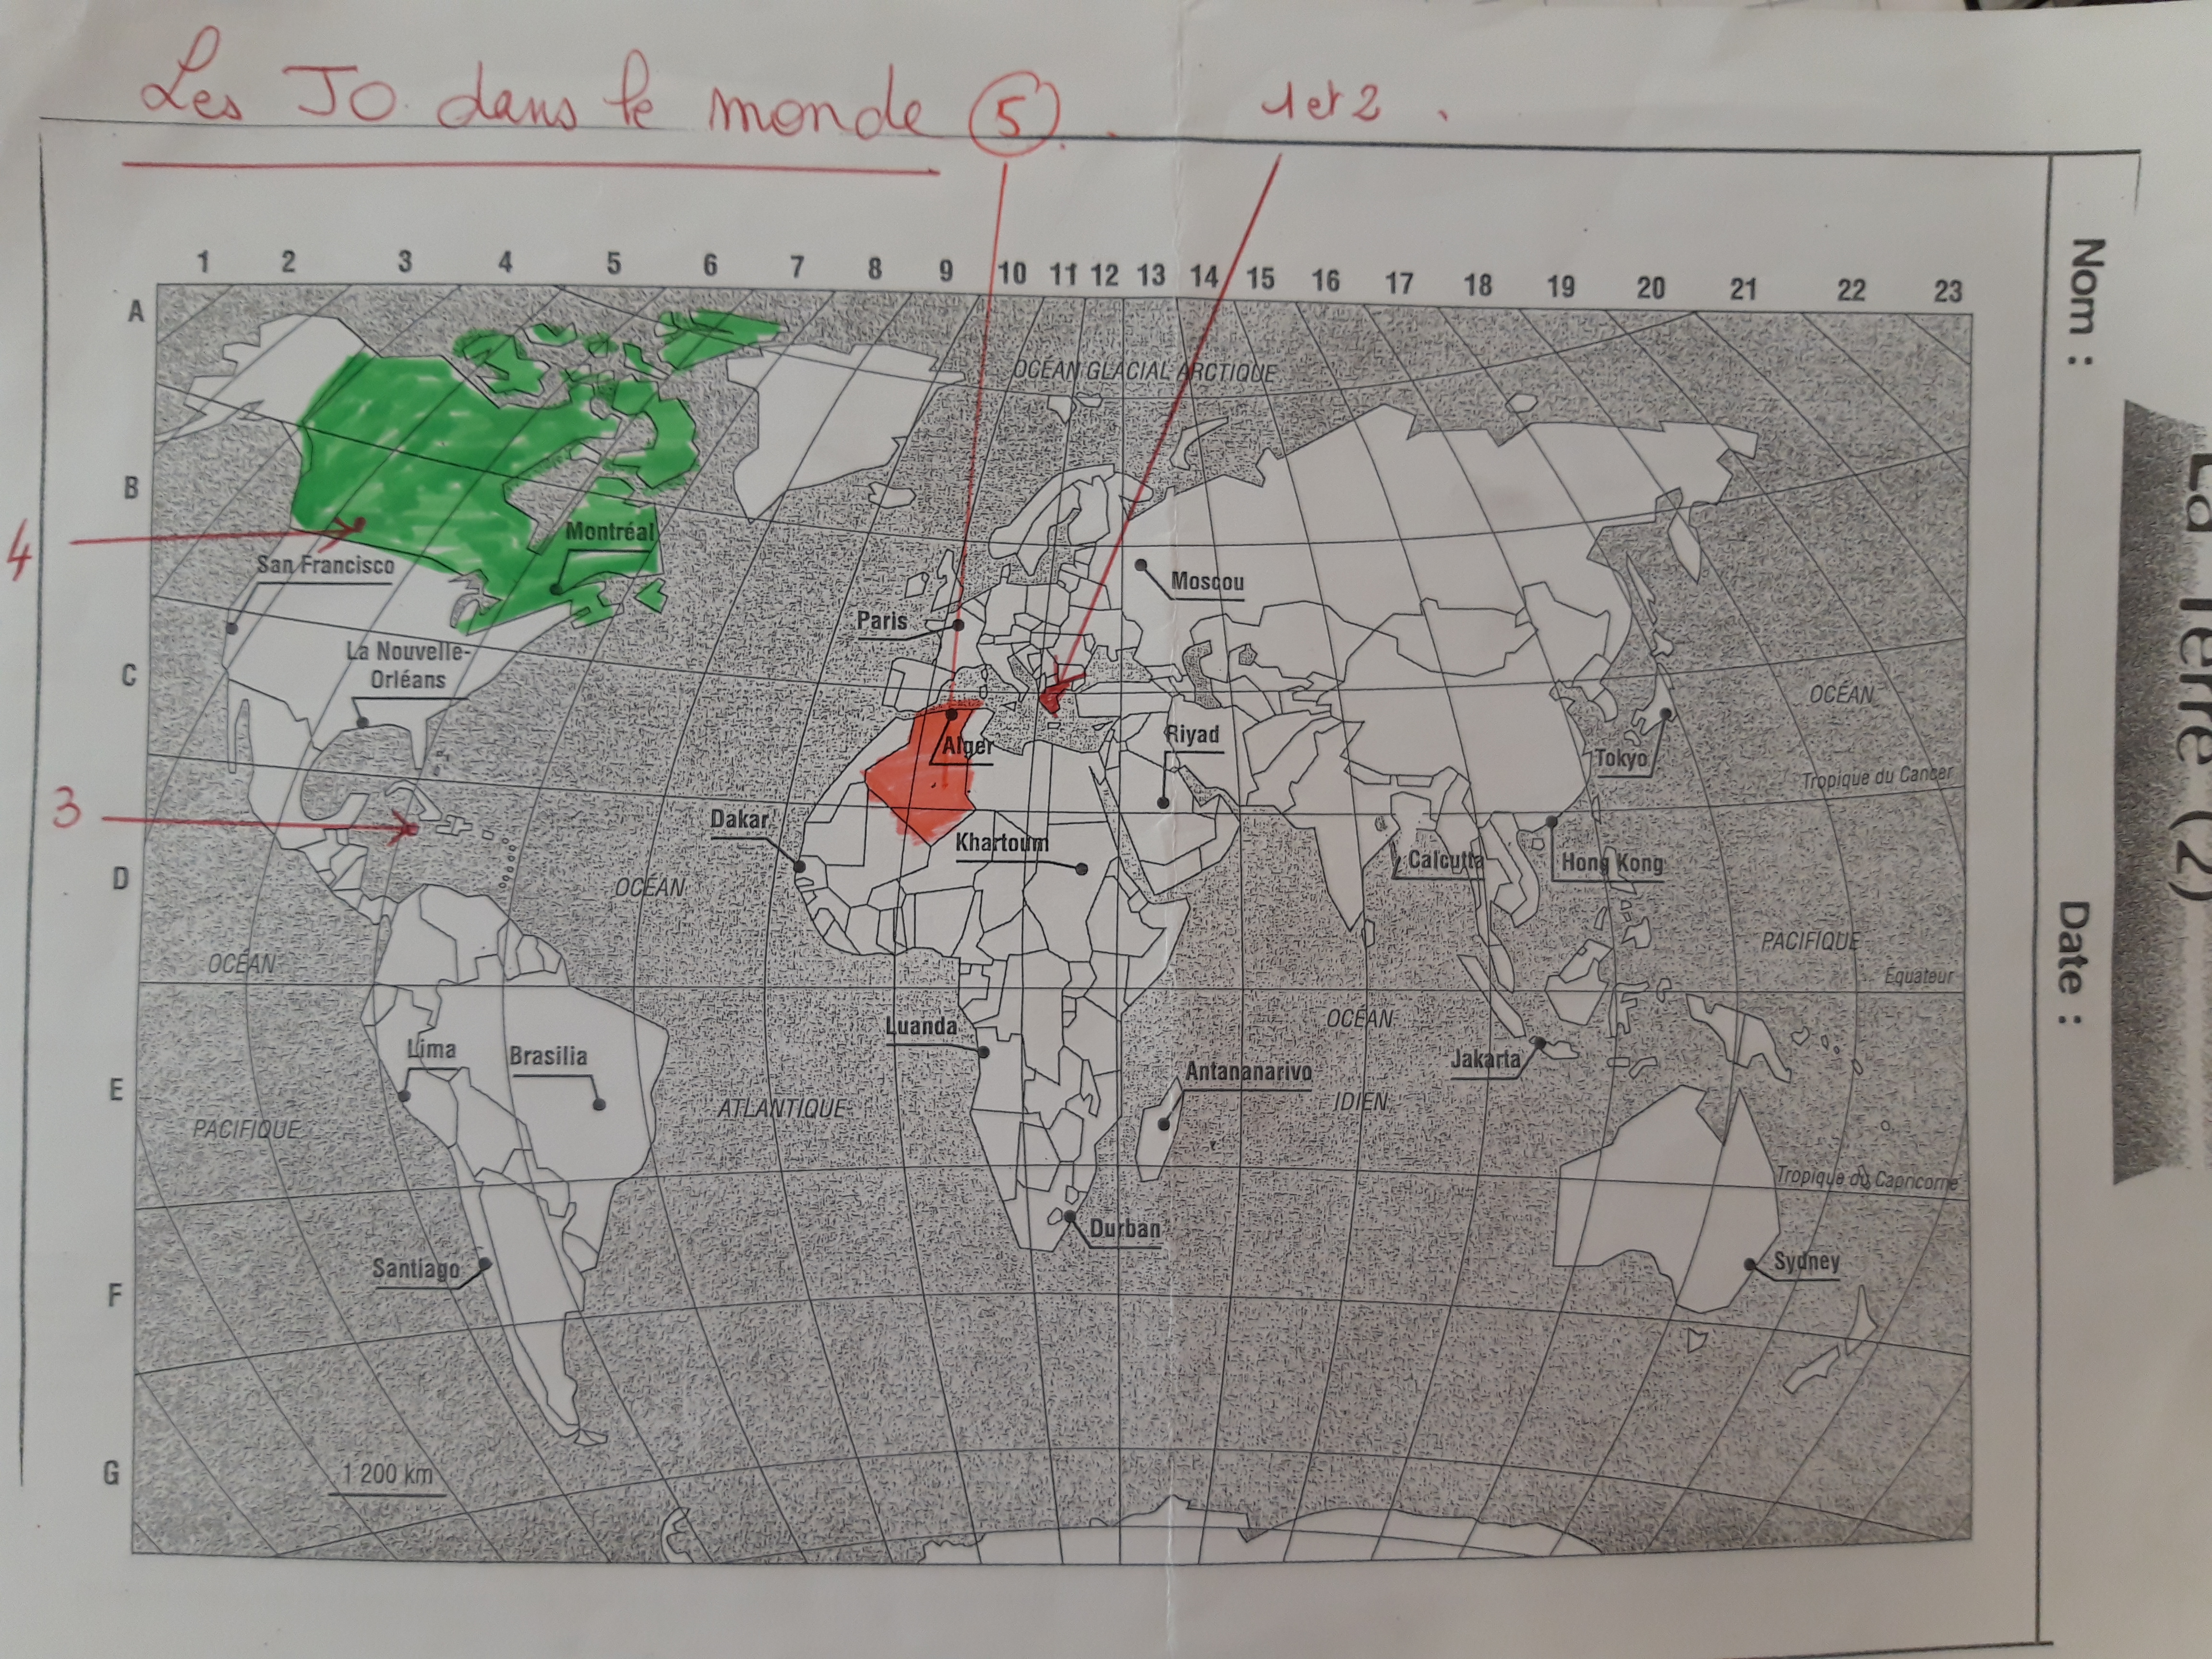 Les JO dans le monde 5.
1 et 2.
Nom :
Date :
La Terre (2)
1 2 3 4 5 6 7 8 9 10 11 12 13 14 15 16 17 18 19 20 21 22 23
A
OCÉAN GLACIAL ARCTIQUE
B
4
Montréal
San Francisco
Moscou
Paris
La Nouvelle-
Orléans
C
OCÉAN
Riyad
Alger
Tokyo
Tropique du Cancer
3
Dakar
Khartoum
Calcutta
Hong Kong
D
OCÉAN
PACIFIQUE
OCÉAN
Equateur
Luanda
OCÉAN
Lima
Brasilia
Jakarta
Antananarivo
E
ATLANTIQUE
IDIEN
PACIFIQUE
Tropique du Capricorne
Durban
Santiago
Sydney
F
G
1 200 km